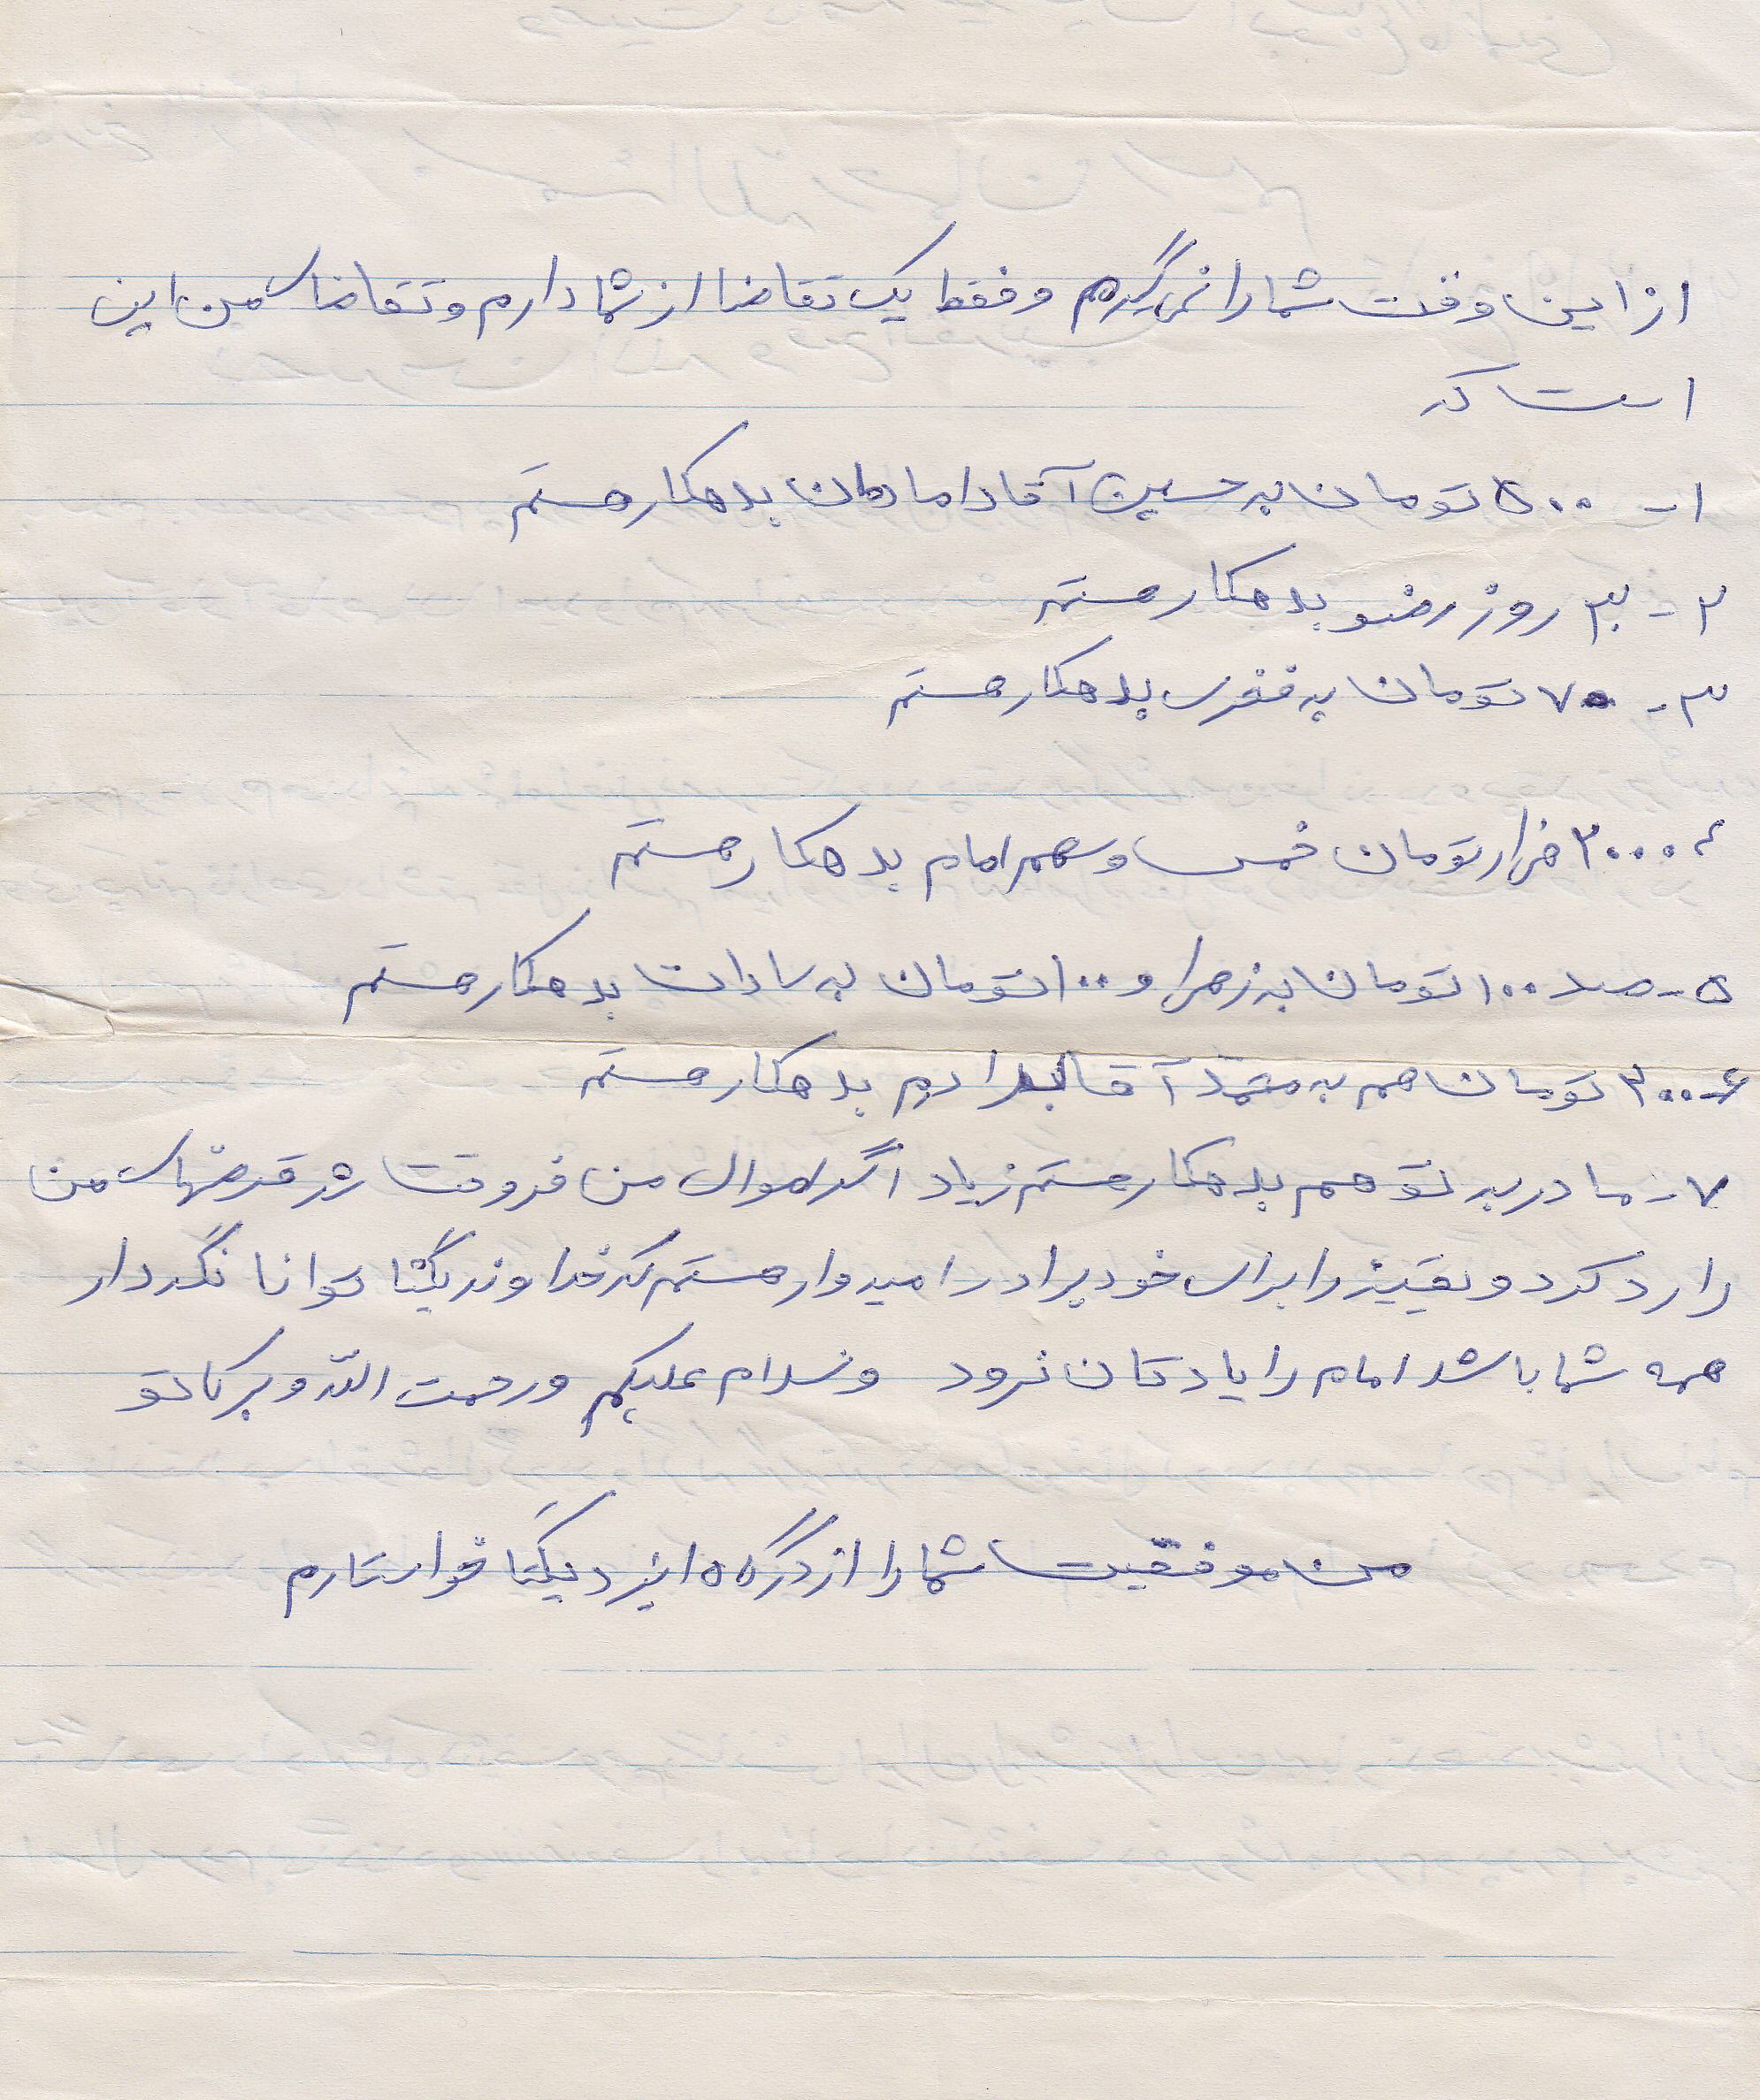 از این وقت شما را نمی‌گیرم و فقط یک تقاضا از شما دارم و تقاضای من این
است که
۱- ۵۰۰ تومان به حسین آقا دامادمان بدهکار هستم
۲- روز بدهکار هستم
۳- تومان به بدهکار هستم
۴ ۲۰۰۰ هزار تومان خمس و سهم امام بدهکار هستم
۵- صد ۱۰۰ تومان به زهرا و ۱۰۰ تومان به سادات بدهکار هستم
۶- ۲۰۰ تومان هم به محمد آقا برادرم بدهکار هستم
۷- مادر به تو هم بدهکار هستم زیاد اگر اموال من فروخت شد قرضهای من
را رد کرد و بقیه را برای خود بردار امیدوار هستم که خداوند یکتا توانا نگهدار
همه شما باشد امام را یادتان نرود وسلام علیکم ورحمت الله وبرکاتو
من موفقیت شما را از درگاه ایزد یکتا خواستارم